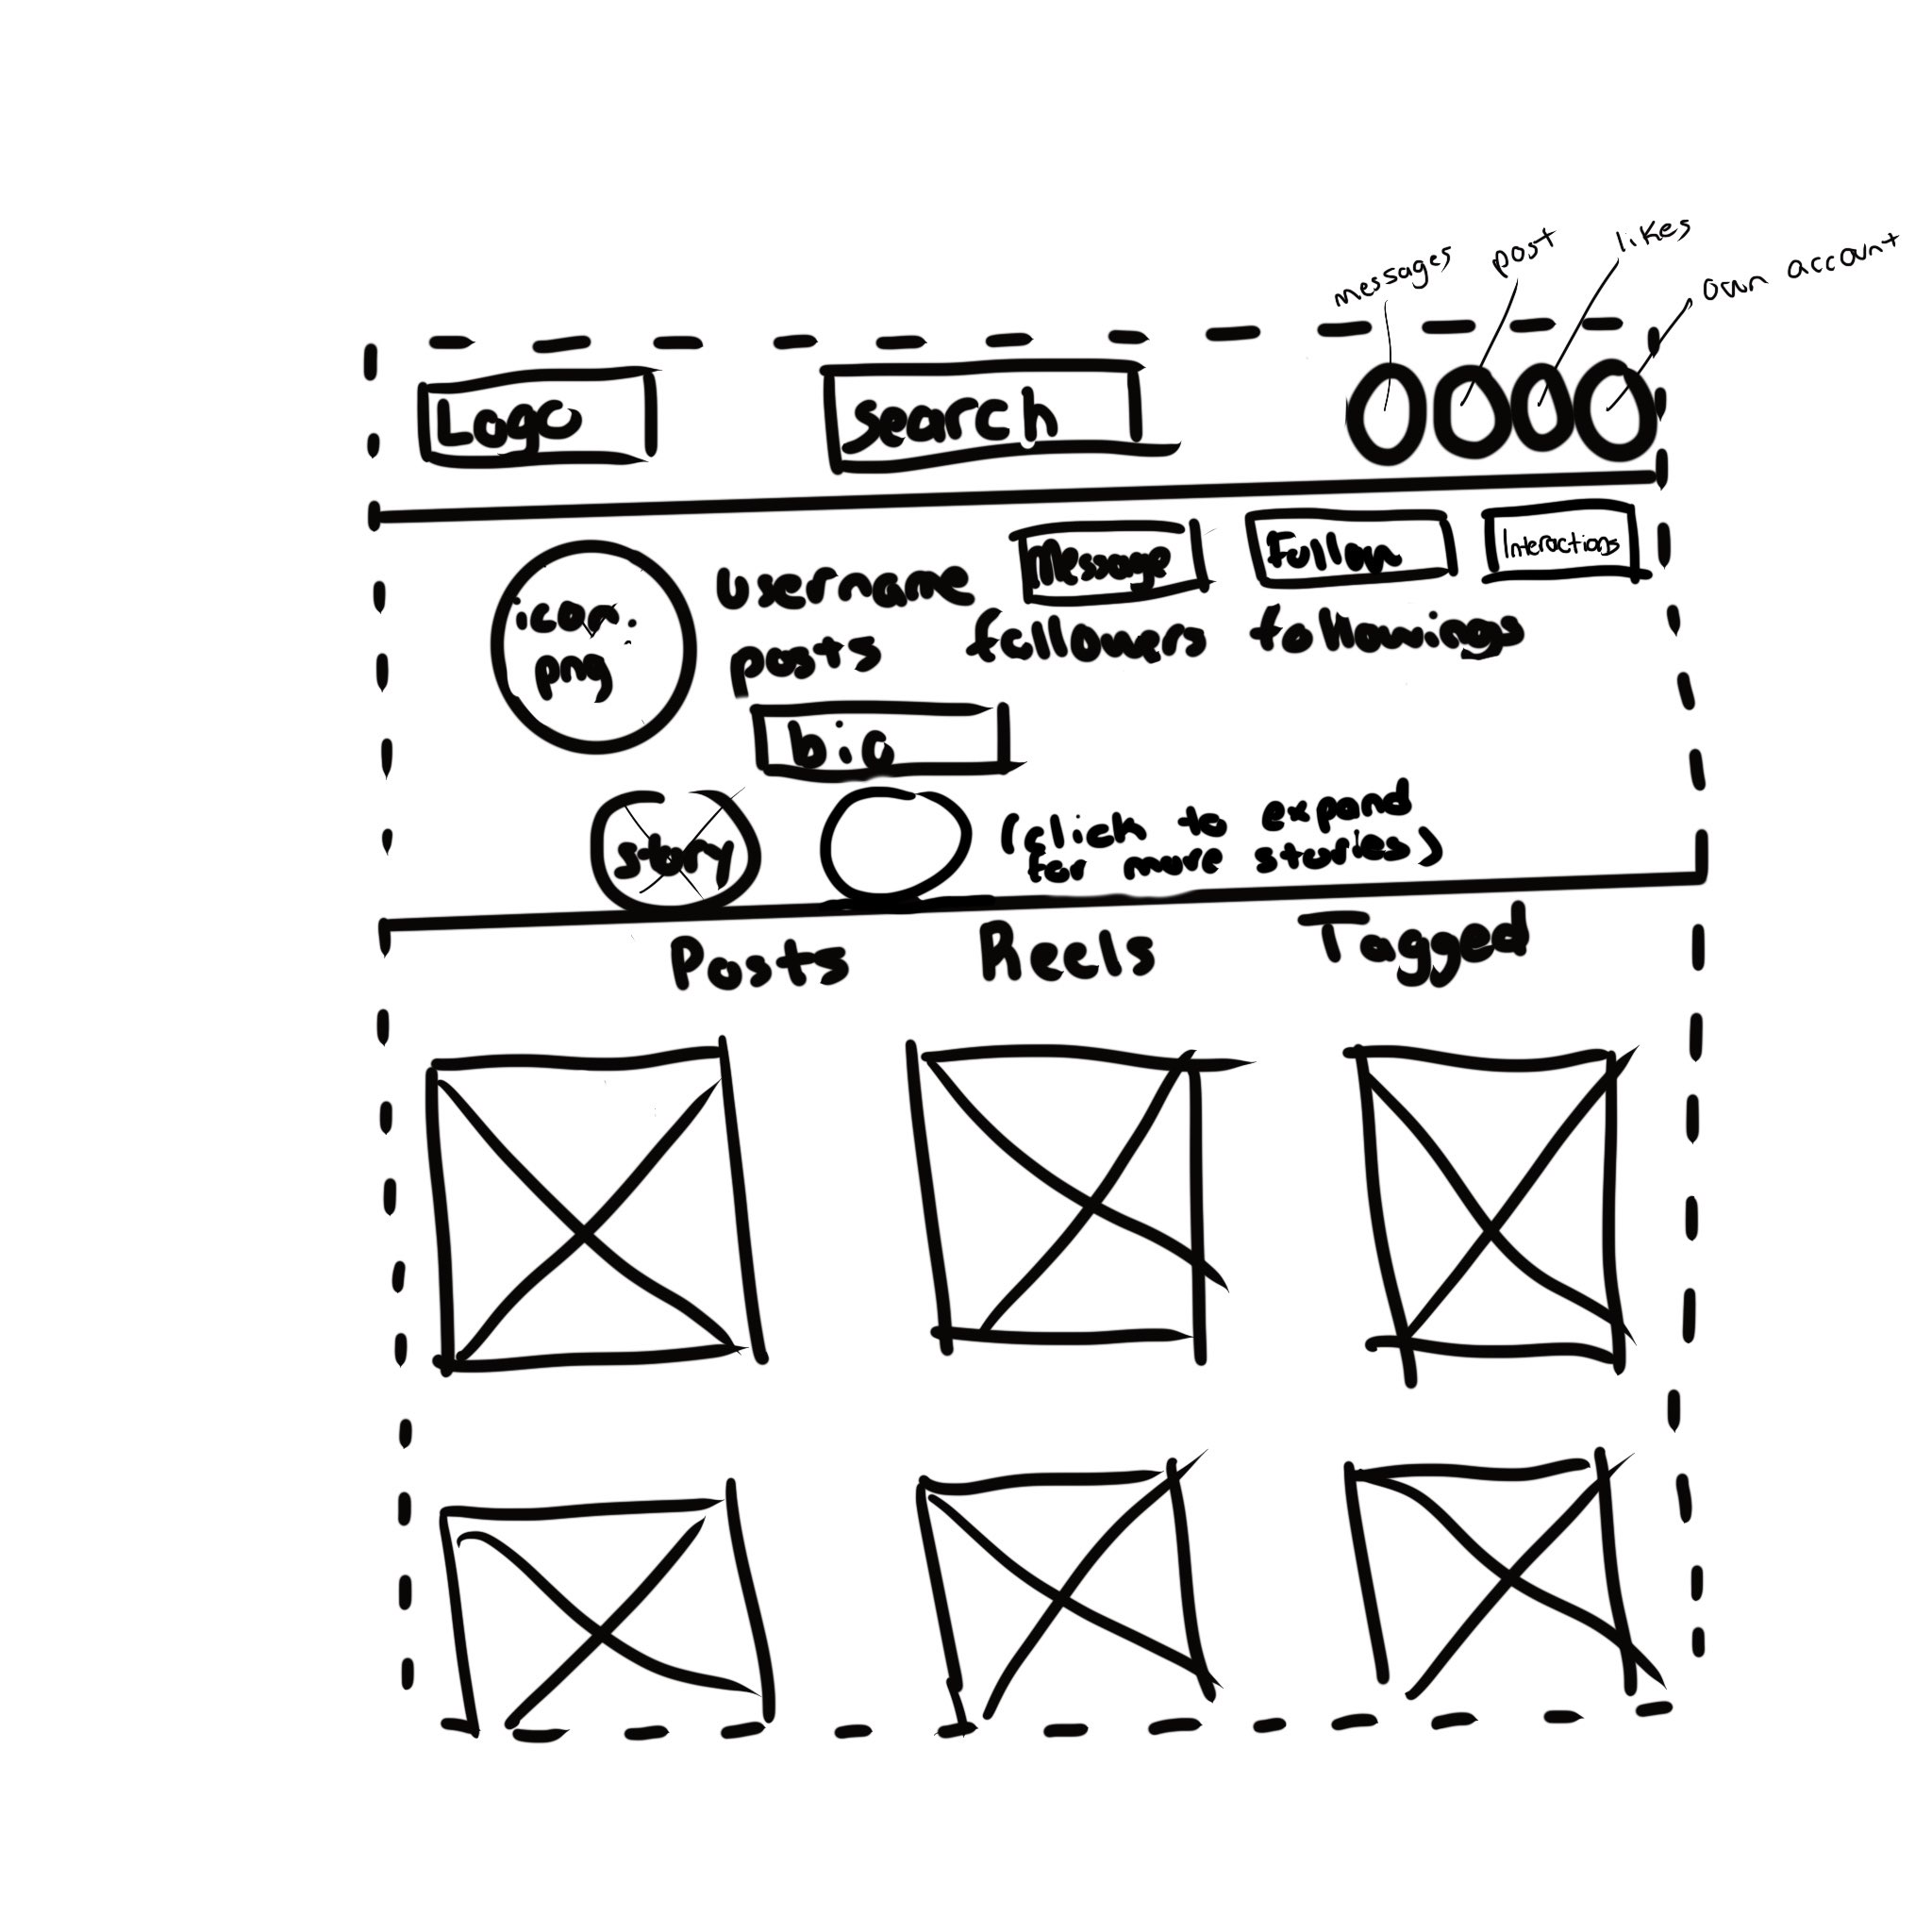 messages post likes own account
Logo search
username Message Follow Interactions
icon.
png
posts followers followings
bio
story (click to expand
for more stories)
Posts Reels Tagged